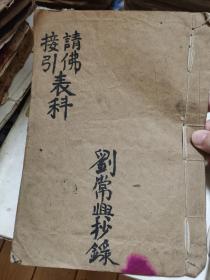 請佛
接引表科
劉常興抄錄